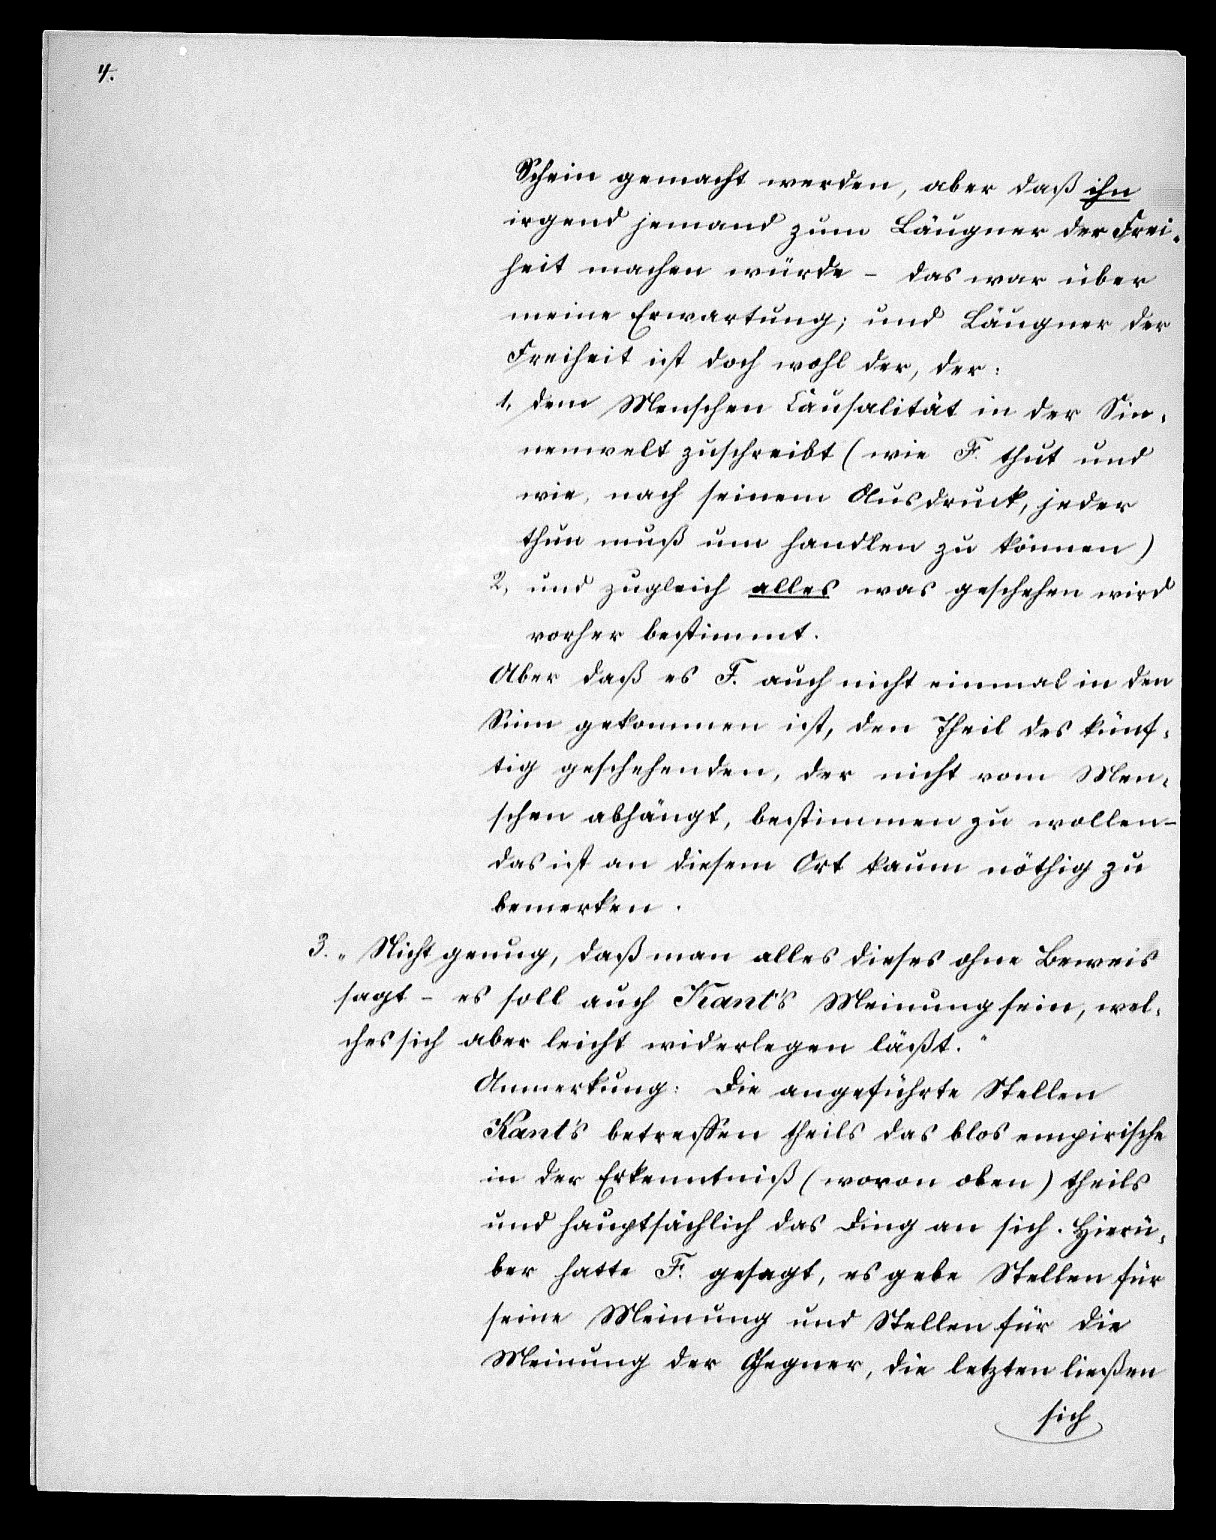 4.
Schein gemacht werden, aber daß ihn
irgend jemand zum Läugner der Frei-
heit machen würde – das war über
meine Erwartung; und Läugner der
Freiheit ist doch wohl der, der:
1, dem Menschen Causalität in der Sin-
nenwelt zuschreibt (wie F. thut und
wie, nach seinem Ausdruck, jeder
thun muß um handlen zu können)
2, und zugleich alles was geschehen wird
vorher bestimmt.
Aber daß es F. auch nicht einmal in den
Sinn gekommen ist, den Theil des künf-
tig geschehenden, der nicht vom Men-
schen abhängt, bestimmen zu wollen –
das ist an diesem Ort kaum nöthig zu
bemerken.
3. „Nicht genug, daß man alles dieses ohne Beweis
sagt – es soll auch Kant's Meinung sein, wel-
ches sich aber leicht widerlegen läßt."
Anmerkung: Die angeführte Stellen
Kant's betreffen theils das blos empirische
in der Erkenntniß (wovon oben) theils
und hauptsächlich das Ding an sich. Hierü-
ber hatte F. gesagt, es gebe Stellen für
seine Meinung und Stellen für die
Meinung der Gegner, die letzten ließen
sich